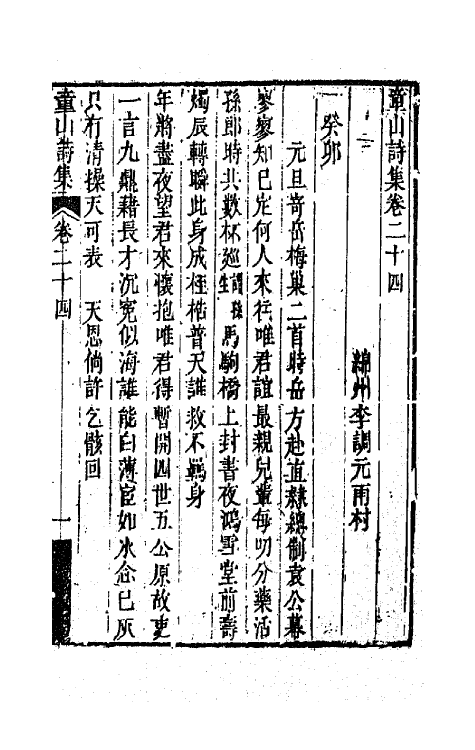 童山詩集卷二十四
綿州李調元雨村
癸卯
元旦寄岳梅巢二首時岳方赴直隸總制袁公幕
寥寥知己定何人來往唯君誼最親兒輩每叨分藥活
孫郎時共數杯巡謂孫馬駒橋上封書夜鴻雪堂前壽
燭辰轉瞬此身成桎梏普天誰救不羈身
年將盡夜望君來懷抱唯君得暫開四世五公原故吏
一言九鼎藉長才沉冤似海誰能白薄宦如冰念已灰
只有清操天可表　天恩倘許乞骸回
童山詩集　卷二十四　一